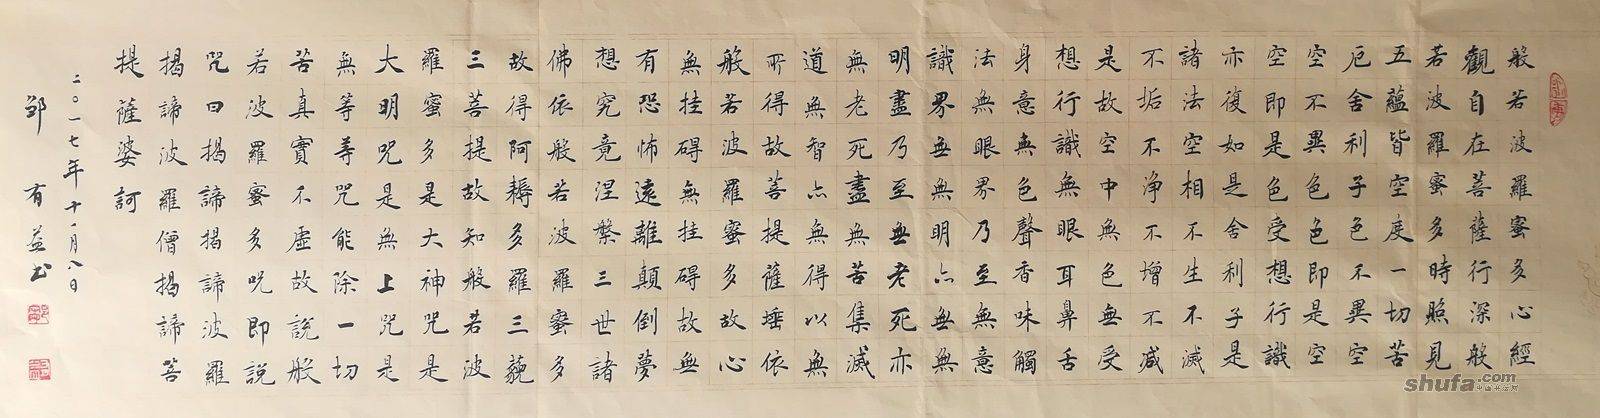 般若波羅蜜多心經
觀自在菩薩行深般
若波羅蜜多時照見
五蘊皆空度一切苦
厄舍利子色不異空
空不異色色即是空
空即是色受想行識
亦復如是舍利子是
諸法空相不生不滅
不垢不淨不增不减
是故空中無色無受
想行識無眼耳鼻舌
身意無色聲香味觸
法無眼界乃至無意
識界無無明亦無無
明盡乃至無老死亦
無老死盡無苦集滅
道無智亦無得以無
所得故菩提薩埵依
般若波羅蜜多故心
無挂碍無挂碍故無
有恐怖遠離顛倒夢
想究竟涅槃三世諸
佛依般若波羅蜜多
故得阿耨多羅三藐
三菩提故知般若波
羅蜜多是大神咒是
大明咒是無上咒是
無等等咒能除一切
苦真實不虛故說般
若波羅蜜多咒即說
咒曰揭諦揭諦波羅
揭諦波羅僧揭諦菩
提薩婆訶
二〇一七年十一月八日
有益书
shufa.com